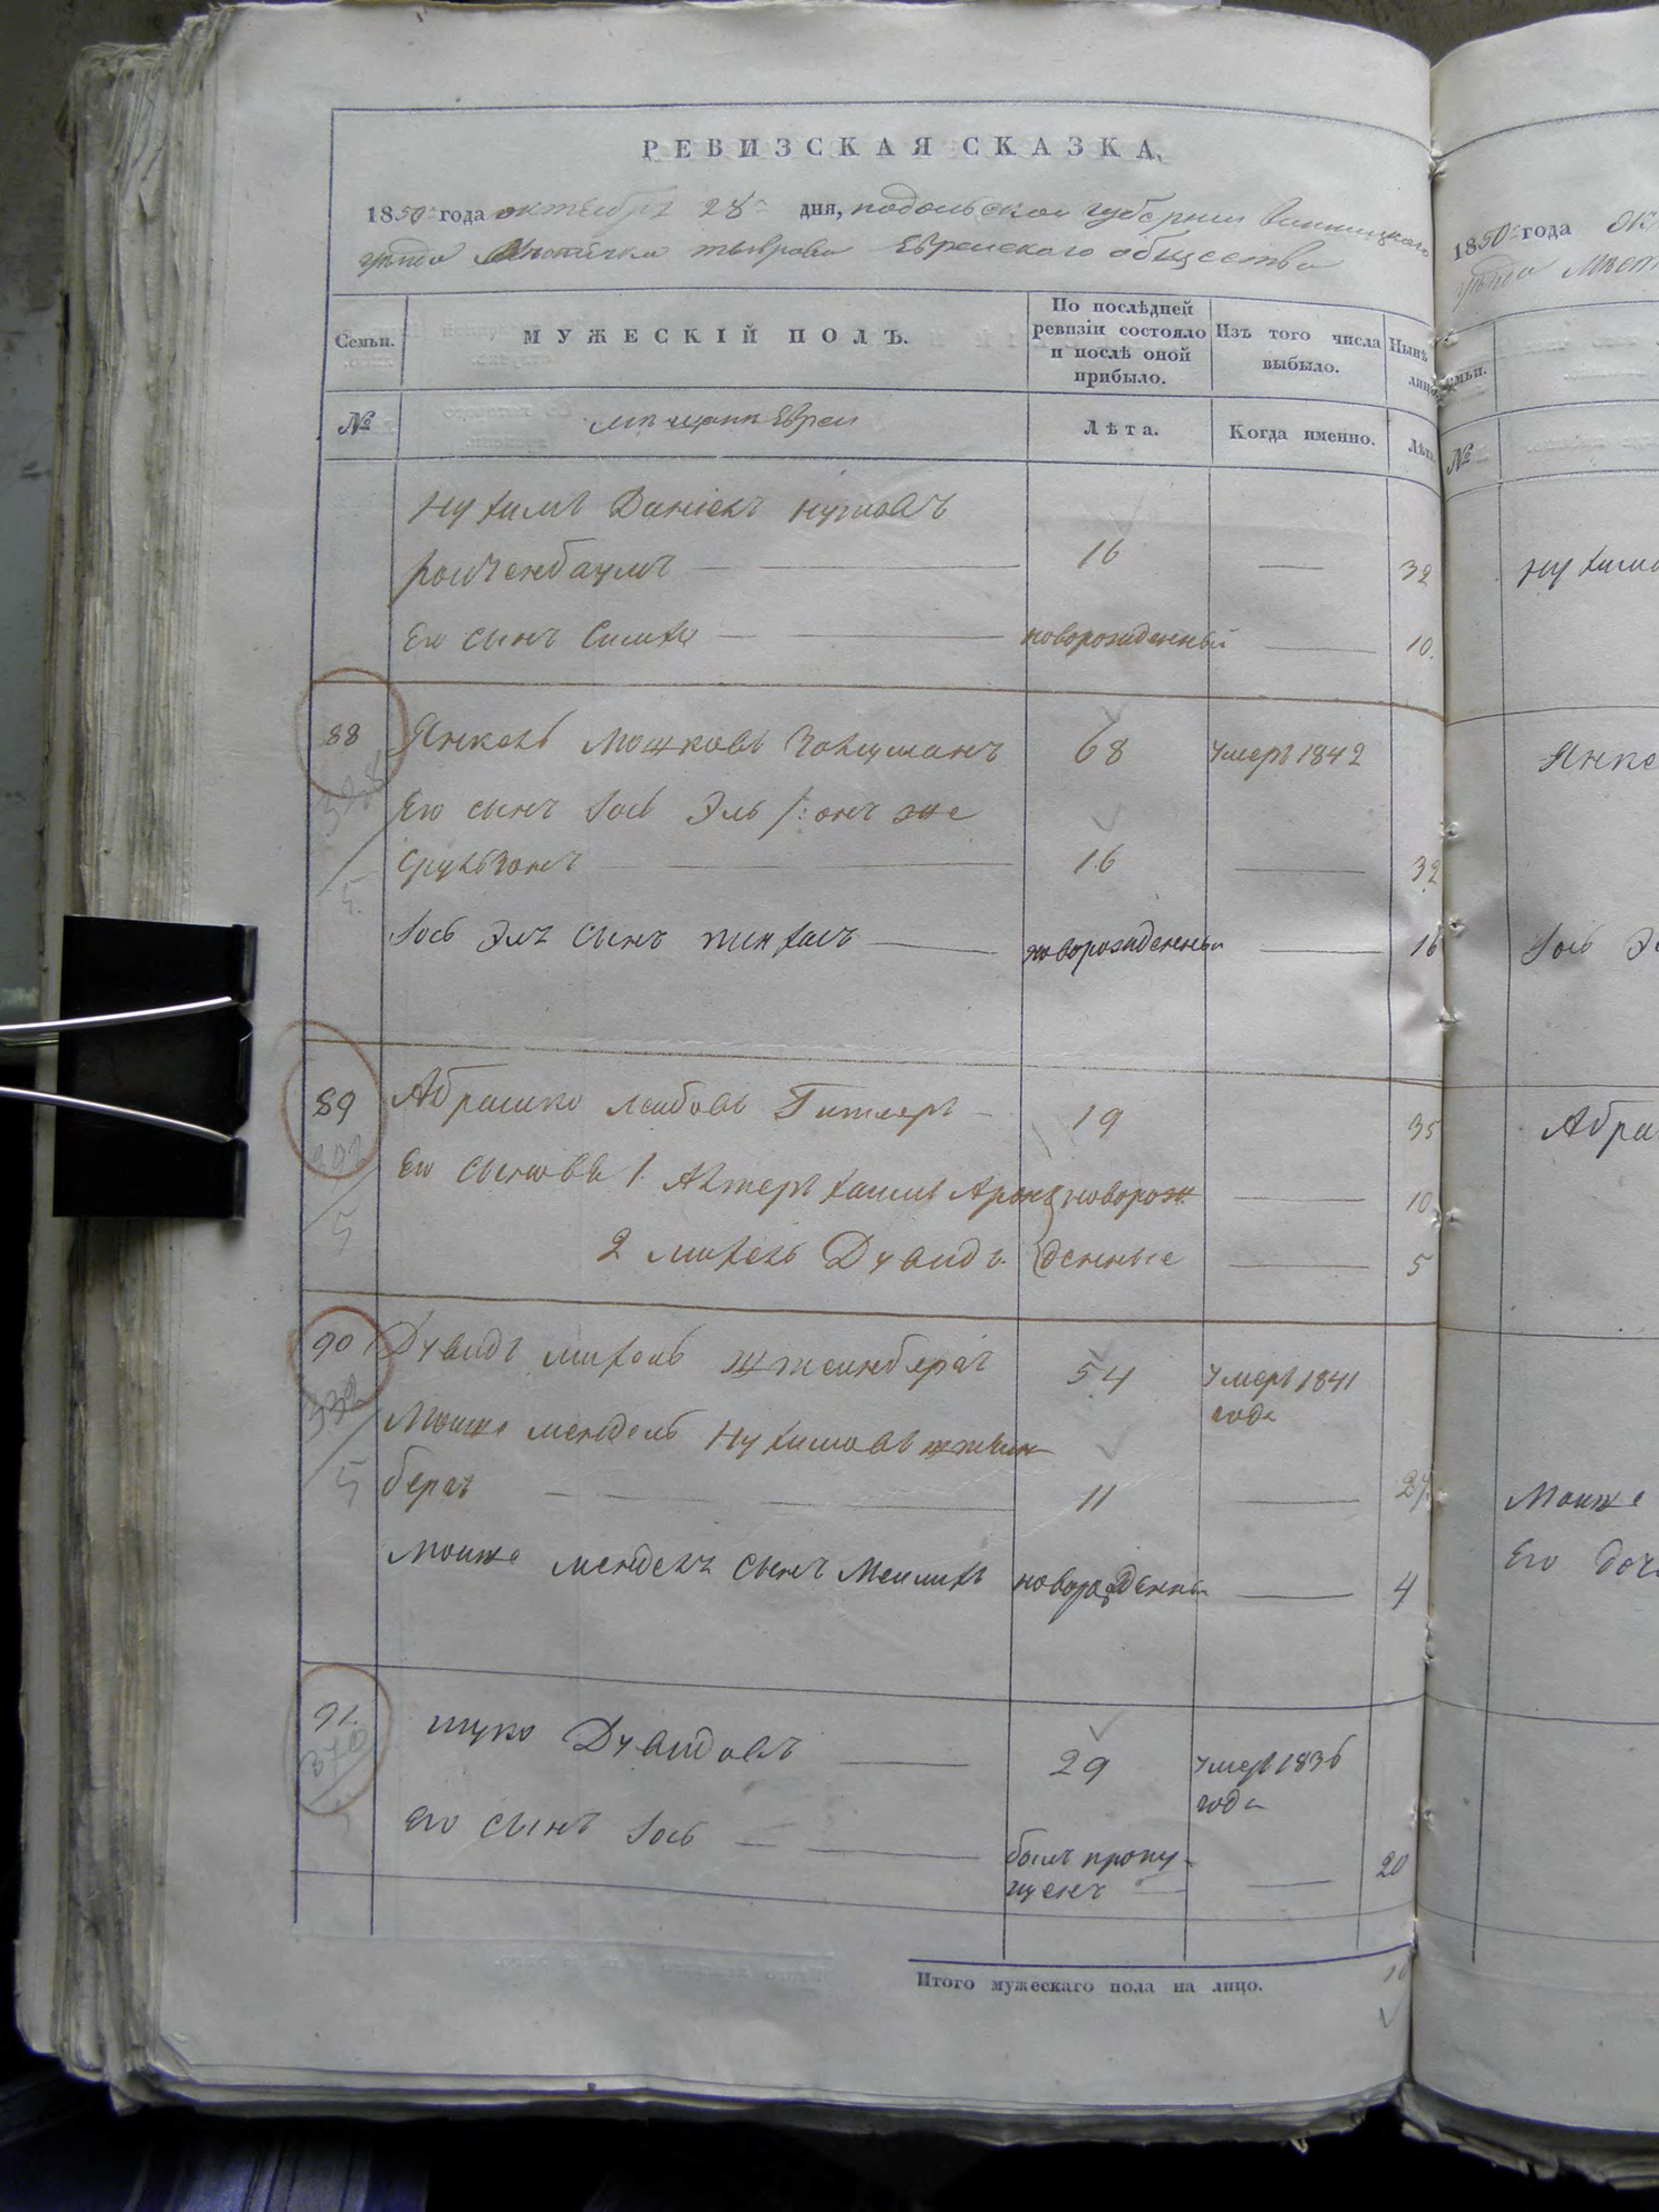 РЕВИЗСКАЯ СКАЗКА,
1850 года октября 28 дня, подольской губернии винницкого
уезда Местечка тыврова Еврейскаго общества
Семьи. МУЖЕСКІЙ ПОЛЪ. По послѣдней ревизіи состояло и послѣ оной прибыло. Изъ того числа выбыло. Нынѣ
№ мещане Евреи Лѣта. Когда именно. Лѣта
Нухимъ Даніелъ
16 32
Его сынъ новорожденный 10.
88 Янкель Мошковъ 68 умеръ 1842
Его сынъ Іось Эль /: онъ же
Срульзонъ 16 32
Іось Элъ сынъ пинхасъ новорожденны 16
89 Абрамко лейбовъ 19 35
Его сыновья 1. Алтеръ хаимъ Аронъ новорож 10
2 михель Дувидъ. денные 5
90 Дувидъ михель штеинбергъ 54 умеръ 1841
года
332
Моше мендель Нухимовъ штеин
бергъ 11 27
Моше мендель сынъ Меилихъ 4
91. Дувидовъ 29 умеръ 1836
года
370
Его сынъ Іось былъ пропу- 20
щенъ
Итого мужескаго пола на лицо. 10
1850 года
№
Семьи.
Янке
Іось Э
Абра
Моше
Его доч